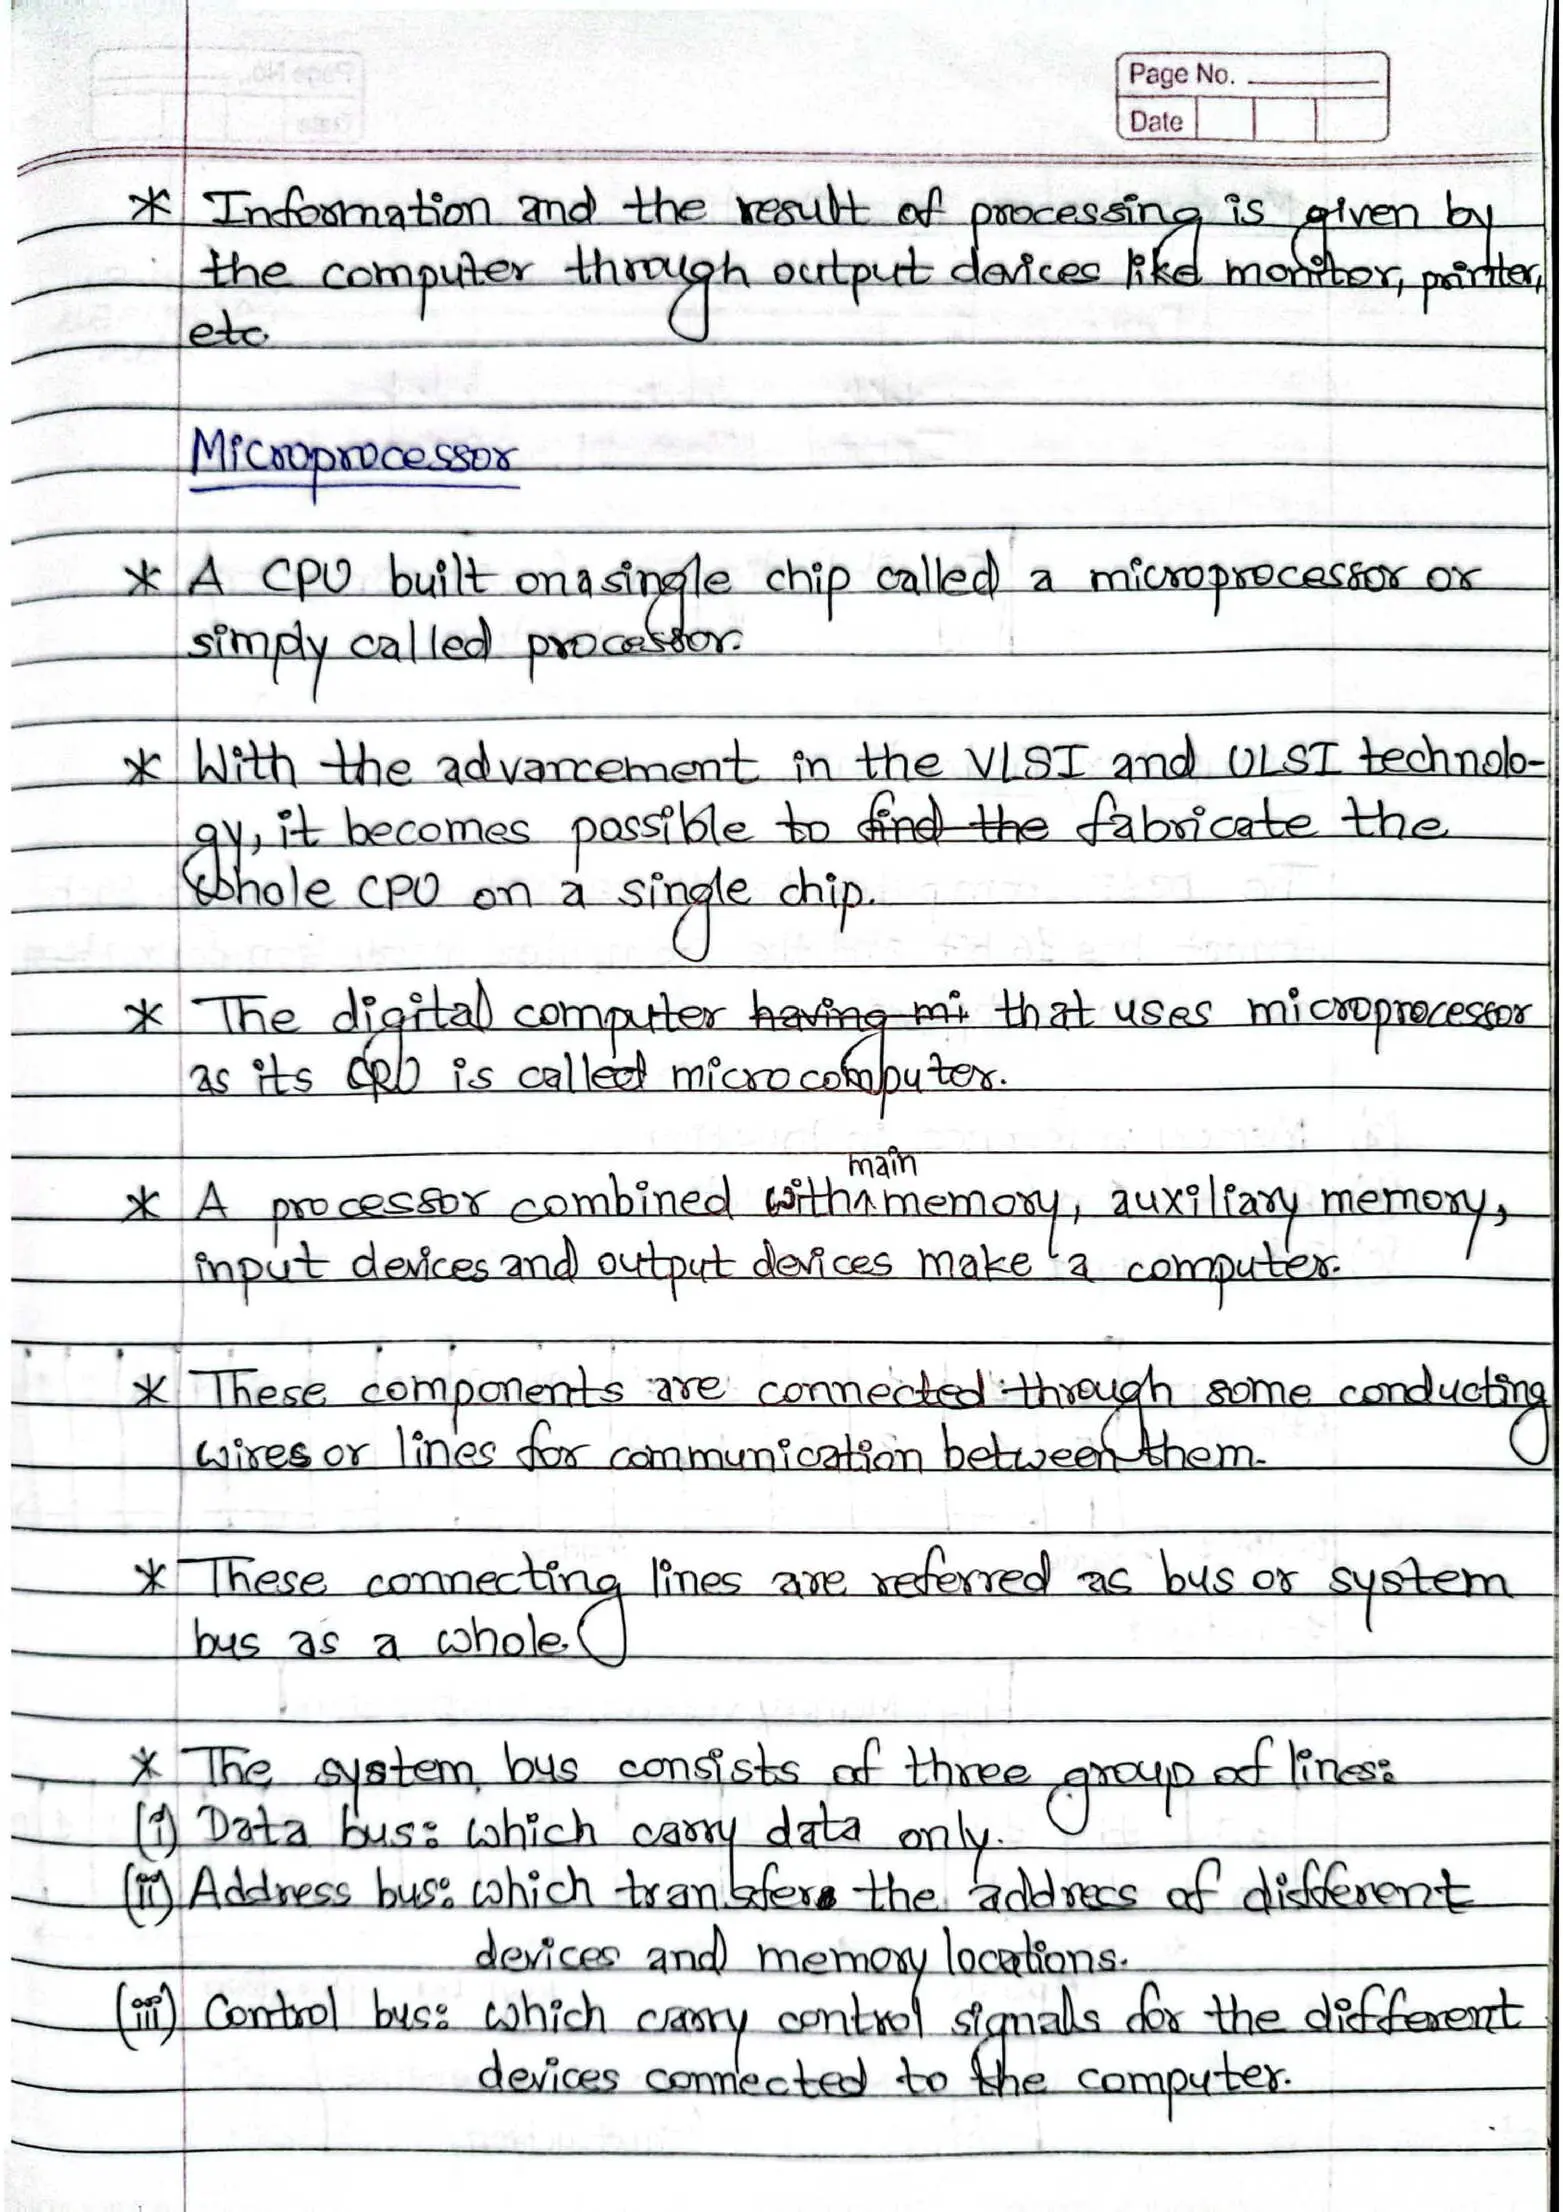 Page No.
Date
* Information and the result of processing is given by
the computer through output devices like monitor, printer,
etc.
Microprocessor
* A CPU built on a single chip called a microprocessor or
simply called processor.
* With the advancement in the VLSI and ULSI technolo-
gy, it becomes possible to find the fabricate the
whole CPU on a single chip.
* The digital computer having mi that uses microprocessor
as its CPU is called microcomputer.
main
* A processor combined with^memory, auxiliary memory,
input devices and output devices make a computer.
* These components are connected through some conducting
wires or lines for communication between them.
* These connecting lines are referred as bus or system
bus as a whole.
* The system bus consists of three group of lines:
(i) Data bus: which carry data only.
(ii) Address bus: which transfers the address of different
devices and memory locations.
(iii) Control bus: which carry control signals for the different
devices connected to the computer.